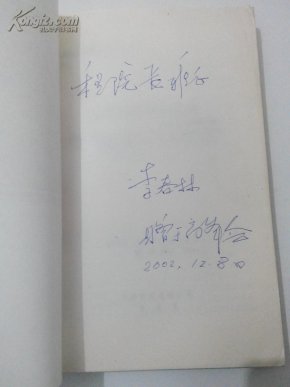 Kongfz.com
孔夫子旧书网
程院长雅正
李春林
赠于高年会
2002.12.8日